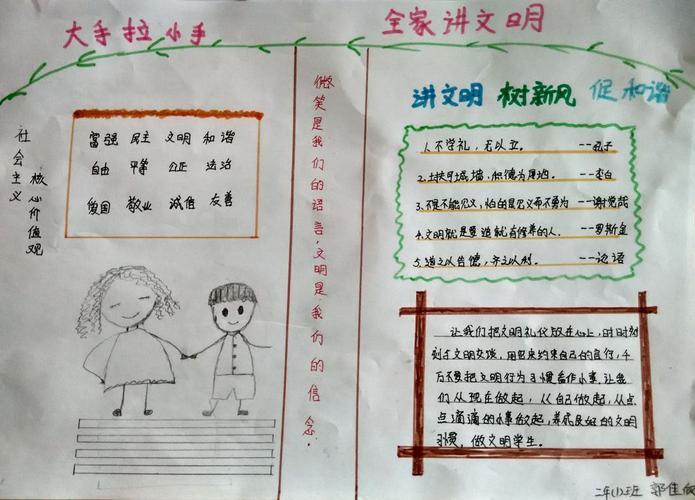 大手拉小手
全家讲文明
社会主义
核心价值观
富强 民主 文明 和谐
自由 平等 公正 法治
爱国 敬业 诚信 友善
微笑是我们的语言,文明是我们的信念.
讲文明 树新风 促和谐
1.不学礼,无以立。 ---孔子
2.土扶可城墙,积德为厚地。 ---李白
3.不是不能见义,怕的是见义而不勇为 ---谢觉哉
4.文明就是要造就有修养的人。 ---罗斯金
5.道之以德,齐之以礼。 ---论语
让我们把文明礼仪放在心上,时时刻
刻于文明交谈,用它来约束自己的言行,千
万不要把文明行为习惯看作小事.让我
们从现在做起,从自己做起,从点
点滴滴的小事做起,养成良好的文明
习惯,做文明学生。
二年(1)班 郭佳